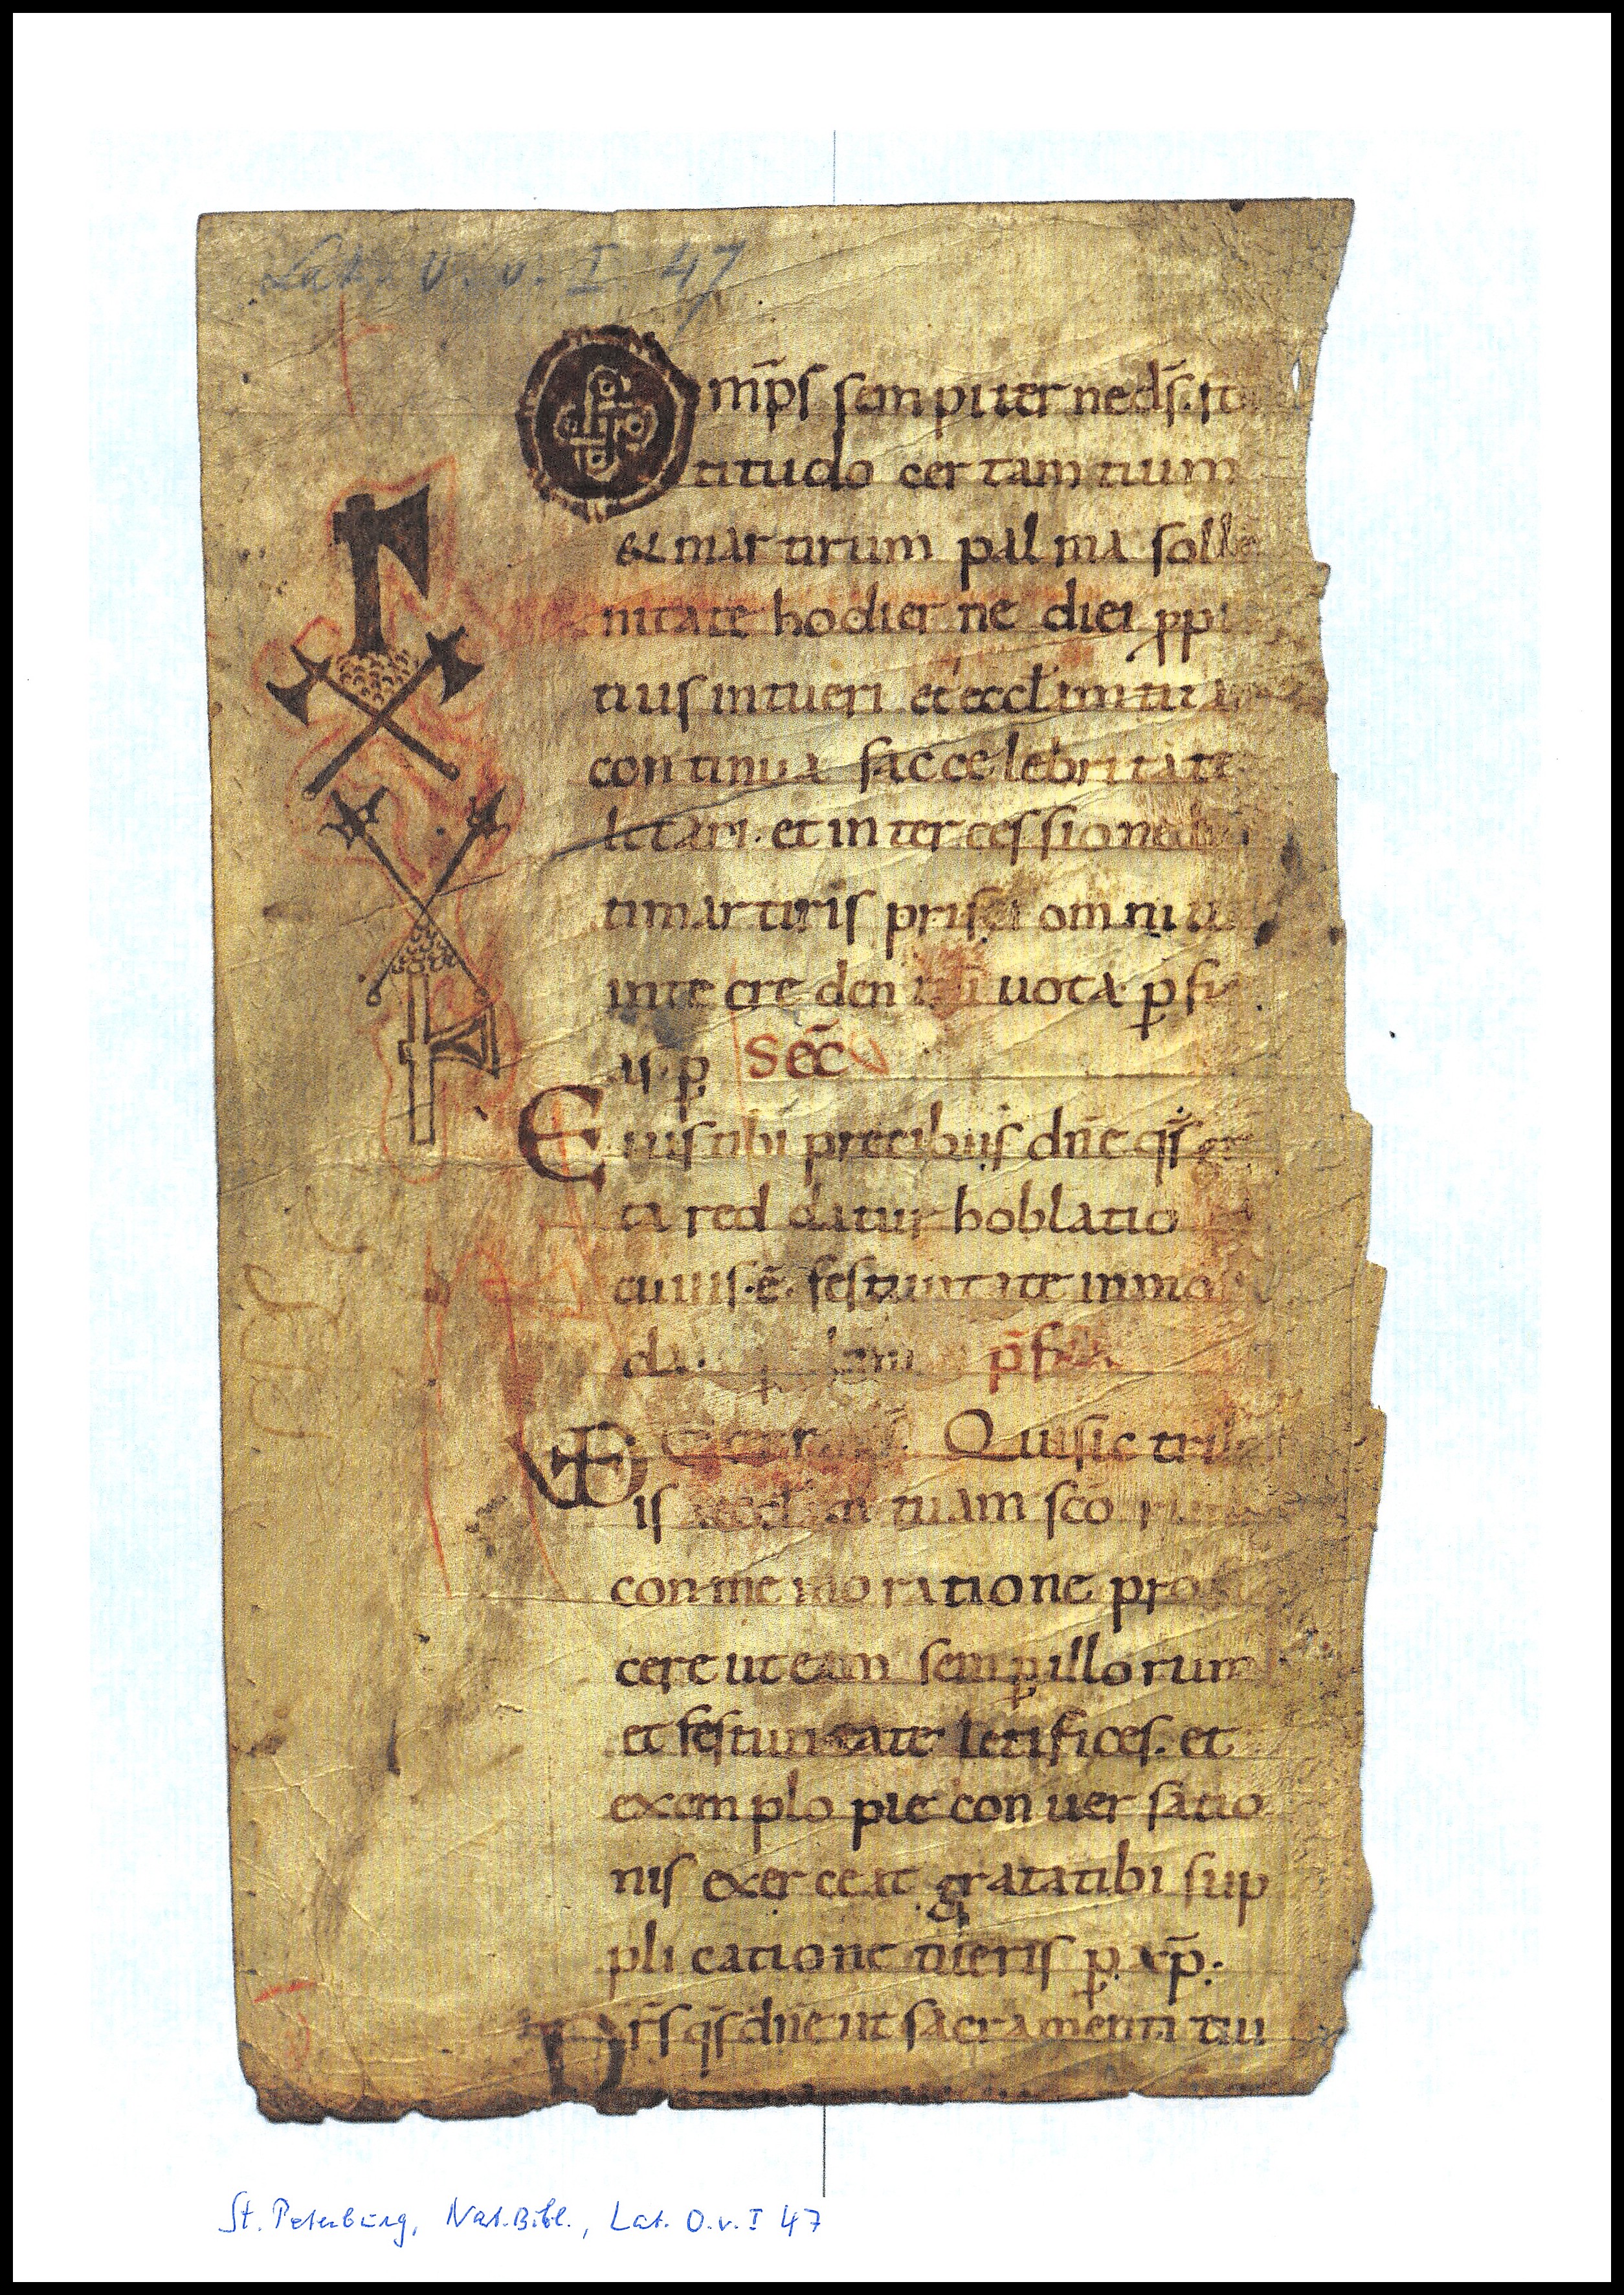 Lat. O. v. I. 47
Om̄ps sempiterne ds̄. fo
titudo certamtium
& martirum palma solle
nitate hodierne diei ꝓpi
tius intueri et eccl
continua fac celebritate
letari. et intercessione
ti martiris prisci omniu
in te credentiū uota ꝑfi
 ꝑ SEC̄
Eius tibi precibus dn̄e qs̄ gr
ta reddatur hoblatio
cuius. ē. festiuitate inmol
 p̄f
VD Qui sic trib
is tuam sc̄o
conmemoratione pro
cere ut eam semꝑ illorum
et festiuitate letifices. et
exemplo pie conuersatio
nis exerceat grata tibi sup
plicatione tueris ꝑ xp̄.
Prs̄ qs̄ dn̄e ut sacramenti tui
St. Petersburg, Nat. Bibl., Lat. O.v. I 47